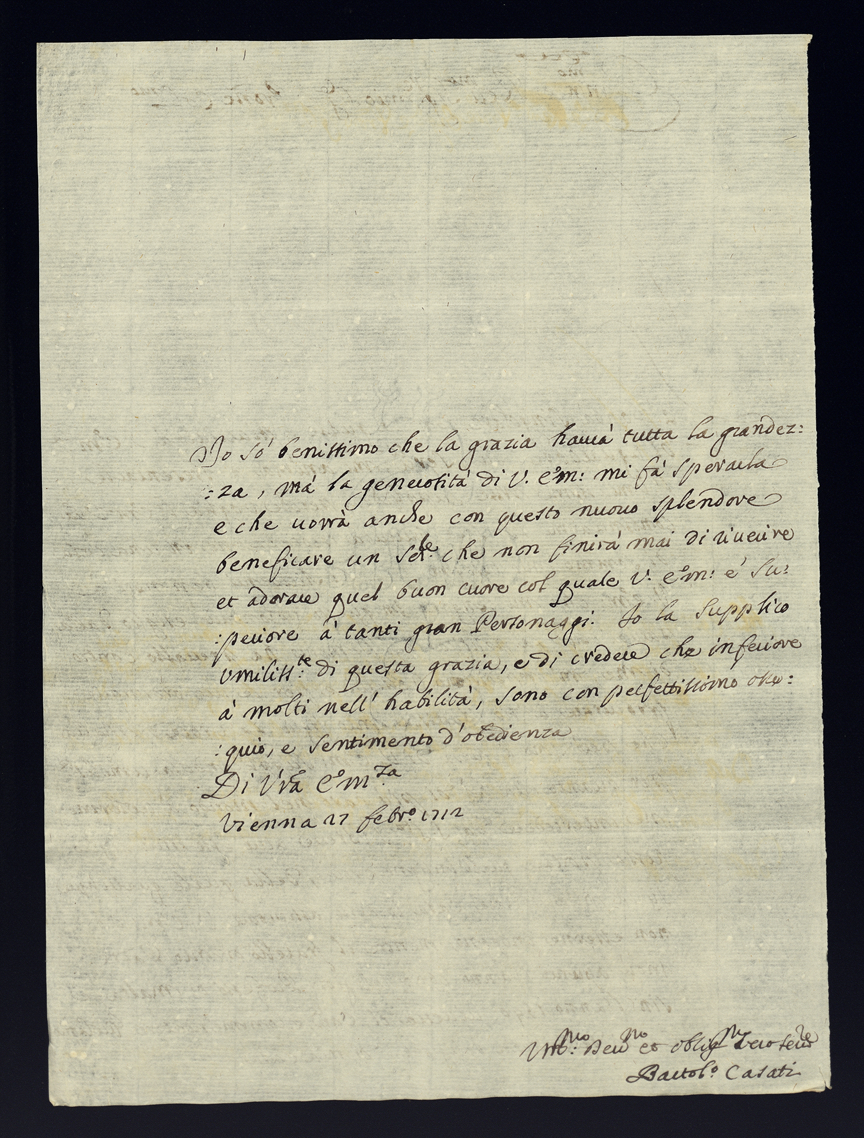 Io sò benissimo che la grazia haurà tutta la grandez:
:za, mà la generosità di V. Em: mi fà sperarla
e che uorrà anche con questo nuouo splendore
beneficare un Ser.re che non finirà mai di riuerire
et adorare quel buon cuore col quale V. Em: è su:
:periore à tanti gran Personaggi. Io la supplico
umiliss.te di questa grazia, e di credere che inferiore
à molti nell' habilità, sono con perfettissimo osse:
:quio, e sentimento d'obedienza
Di Vra Em.za
Vienna 27 febr.o 1712
Um.mo Deu.mo et oblig.mo Seru.re
Bartol.o Casati